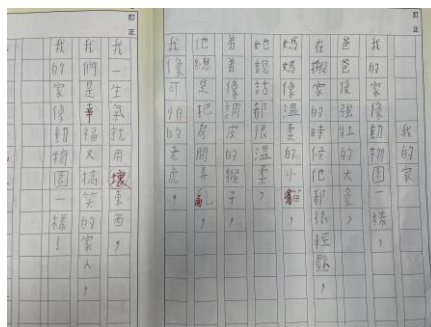 訂正
我的家
我的家像動物園一樣，
爸爸像強壯大象，
在搬家的時候他都很輕鬆，
媽媽像溫柔的小貓，
她說話都很溫柔，
弟弟像調皮的猴子，
他總是把房間弄亂，
我像可怕的老虎，
訂正
我一生氣就用壞東西，
我們是幸福又搞笑的家人，
我的家像動物園一樣！